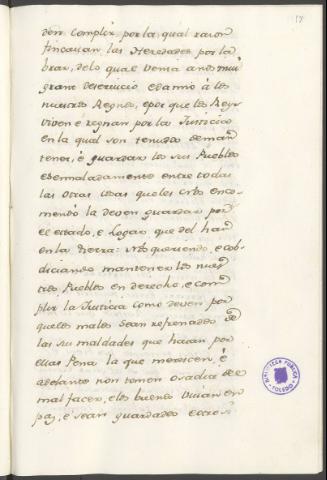 18
den complir por la qual raron
fincauan las Heredades por la
brar, de lo qual venia a nos mui
grant deseruicio e danno à los
nuestros Regnos, e por que los Reys
viven e regnan por la Justicia
en la qual son tenudos de man
tener, é guardar los sus Pueblos
e sennaladamente entre todas
las otras cosas que les Dios enco-
mendó la deven guardar por
el estado, e Logar que del han
en la tierra: Nos queriendo, e cob-
diciando mantener los nues
tros Pueblos en derecho, e com
plir la Justicia como deven por
que los malos sean refrenados de
las sus maldades que hauan por
ellas Pena la que merescen, é
adelante non tomen osadia de
mal facer, e los buenos vivan en
paz, é sean guardados
BIBLIOTECA PUBLICA
TOLEDO